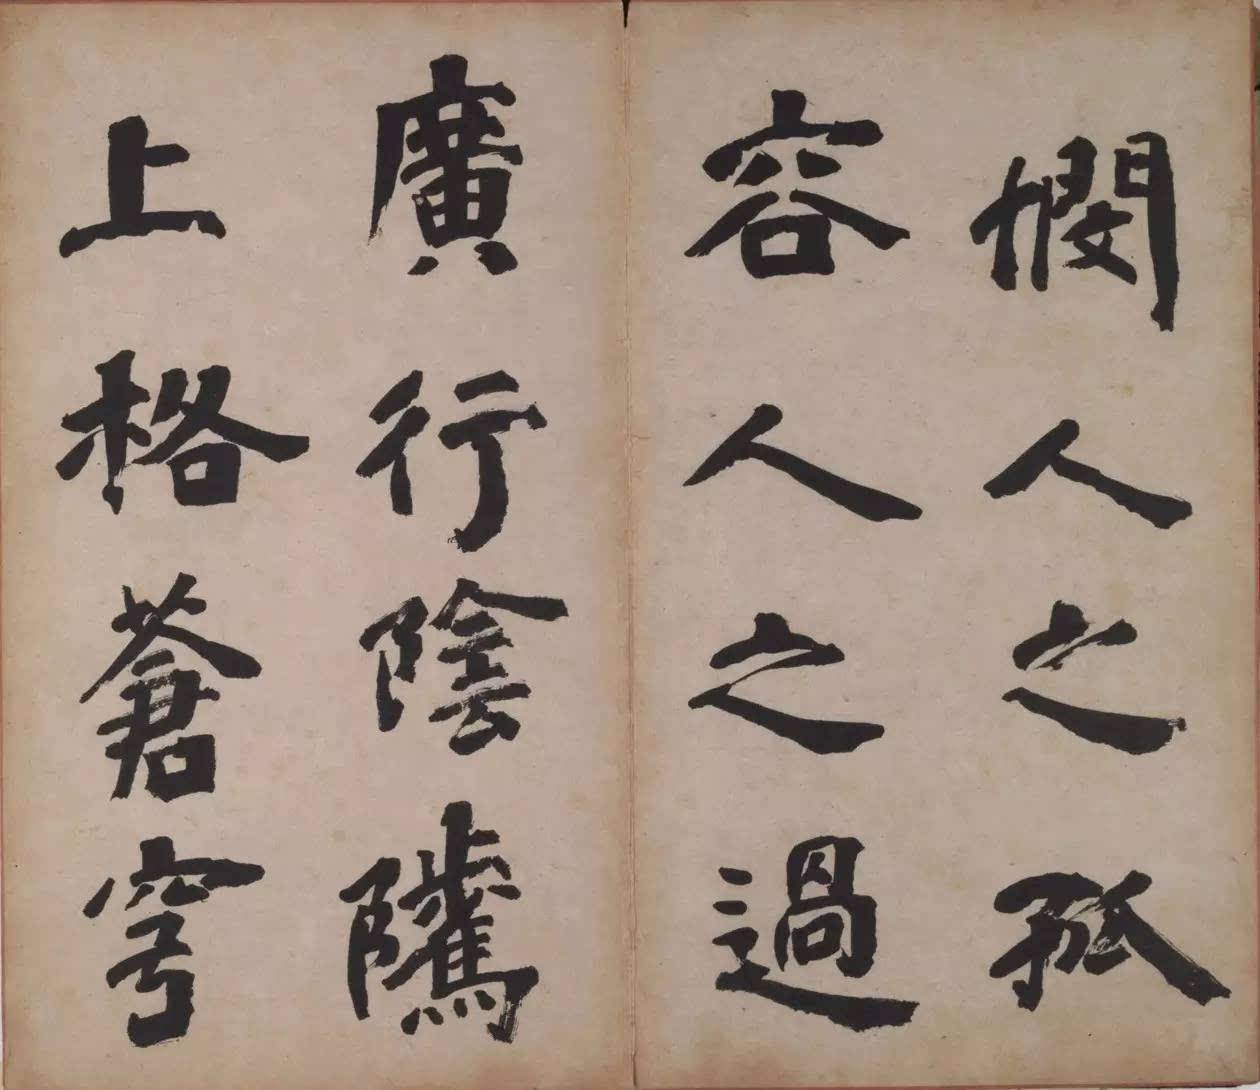 憫人之孤
容人之過
廣行陰隲
上格蒼穹